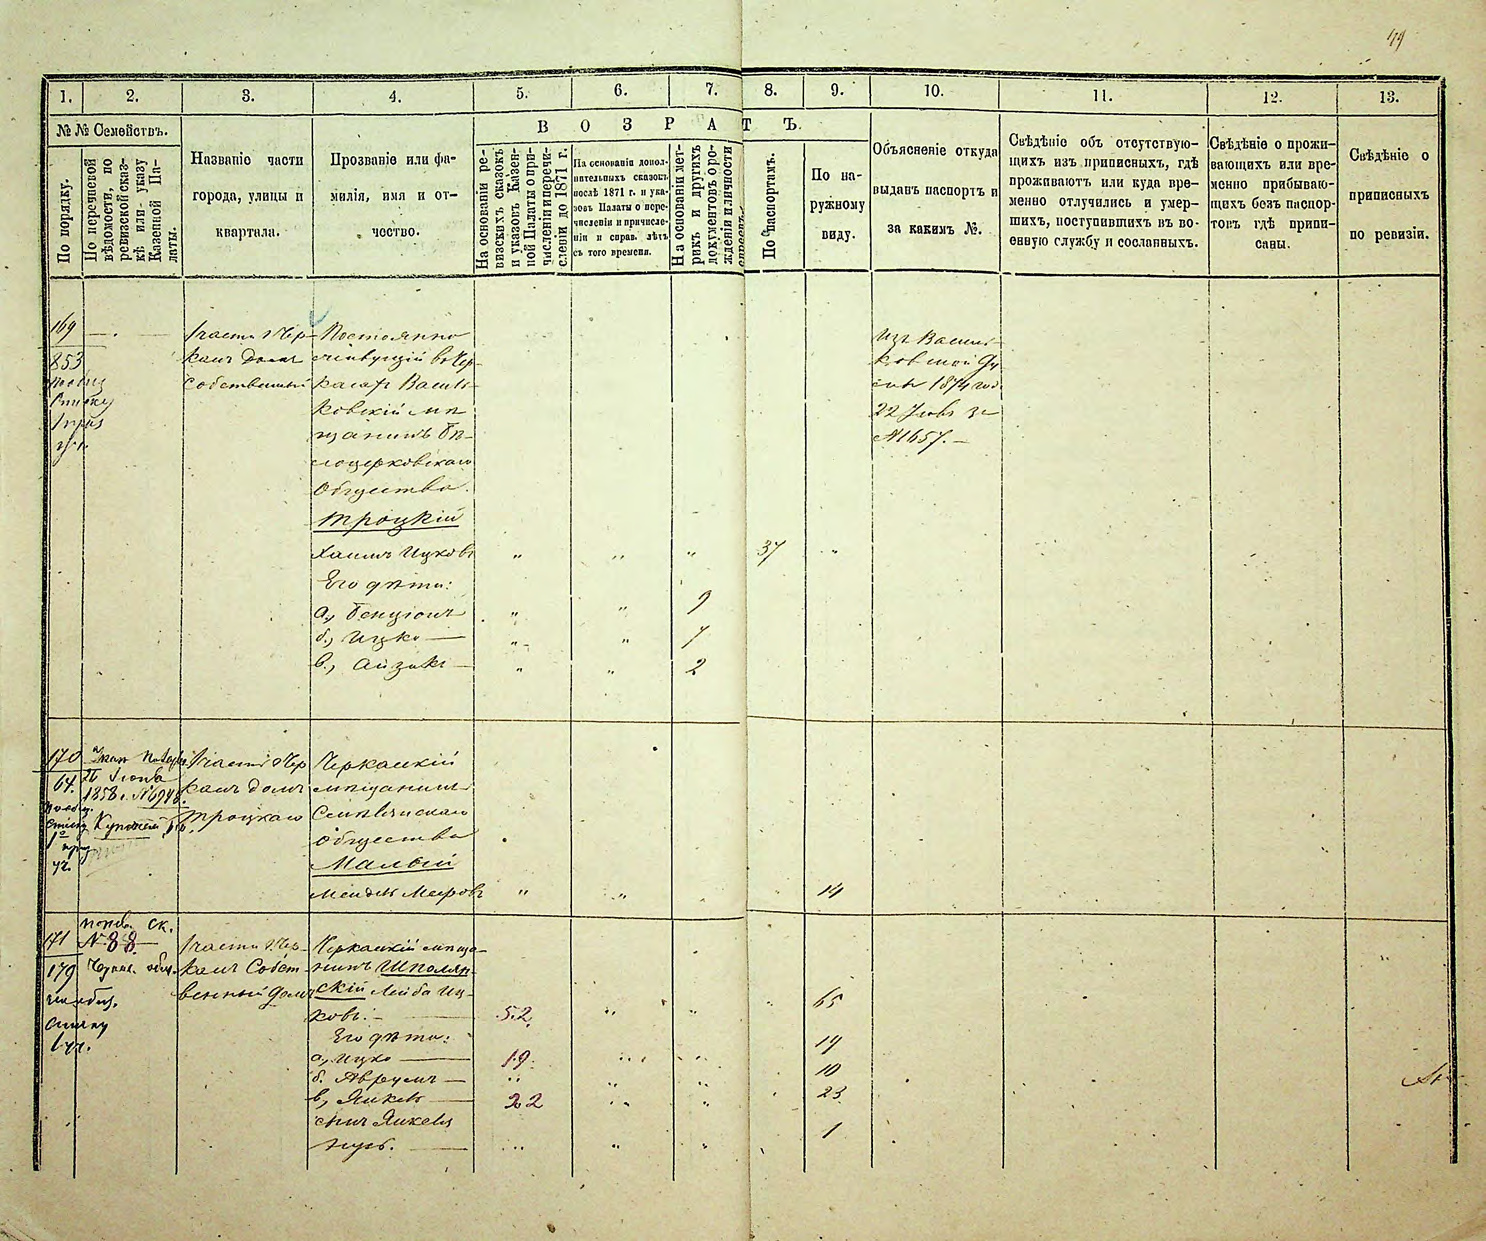 49
1. 2. 3. 4. 5. 6. 7. 8. 9. 10. 11. 12. 13.
№ № Семействъ.
По порядку.
По перечневой
вѣдомости, по
ревизской сказ-
кѣ или указу
Казенной Па-
латы.
Названіе части
города, улицы и
квартала.
Прозваніе или фа-
милія, имя и от-
чество.
ВОЗРАТЪ.
На основаніи ре-
визскихъ сказокъ
и указовъ Казен-
ной Палаты о при-
численіи и перечи-
сленіи до 1871 г.
На основаніи допол-
нительныхъ сказокъ
послѣ 1871 г. и ука-
зовъ Палаты о пере-
численіи и причисле-
ніи и справ. лѣтъ
съ того времени.
На основаніи мет-
рикъ и другихъ
документовъ о ро-
жденіи и личности
По паспортамъ.
По на-
ружному
виду.
Объясненіе откуда
выданъ паспортъ и
за какимъ №.
Свѣдѣніе объ отсутствую-
щихъ изъ приписныхъ, гдѣ
проживаютъ или куда вре-
менно отлучились и умер-
шихъ, поступившихъ въ во-
енную службу и сосланныхъ.
Свѣдѣніе о прожи-
вающихъ или вре-
менно прибываю-
щихъ безъ паспор-
товъ гдѣ припи-
саны.
Свѣдѣніе о
приписныхъ
по ревизіи.
169
853
списку
1 части г Чер-
касъ Домъ
собственный
Постоянно
живущій въ Чер-
касахъ Василь-
ковскій мѣ-
щанинъ Бѣ-
лоцерковскаго
Общества
Троцкій
Хаимъ Ицковъ 37
Его дѣти:
а., Бенціонъ 9
б., Ицко 7
в., Айзикъ 2
Изъ Василь-
ковской
1874 год.
22 за
№1657.
170
64.
1858 г. №6948.
1 части г Чер
касъ домъ
Троцкаго
Черкаскій
мѣщанинъ
общества
Малый
Мендель Меировъ 14
171
179
ск.
№ 88
списку
1 уч.
1 части г. Чер-
касъ Собст-
венный домъ
Черкаскій мѣща-
нинъ Шполян-
скій Лейба Иц-
ковъ. 52 65
Его дѣти:
а., Ицко 19 19
б. Аврумъ 10
в., Янкель 22 23
сынъ Янкеля
1